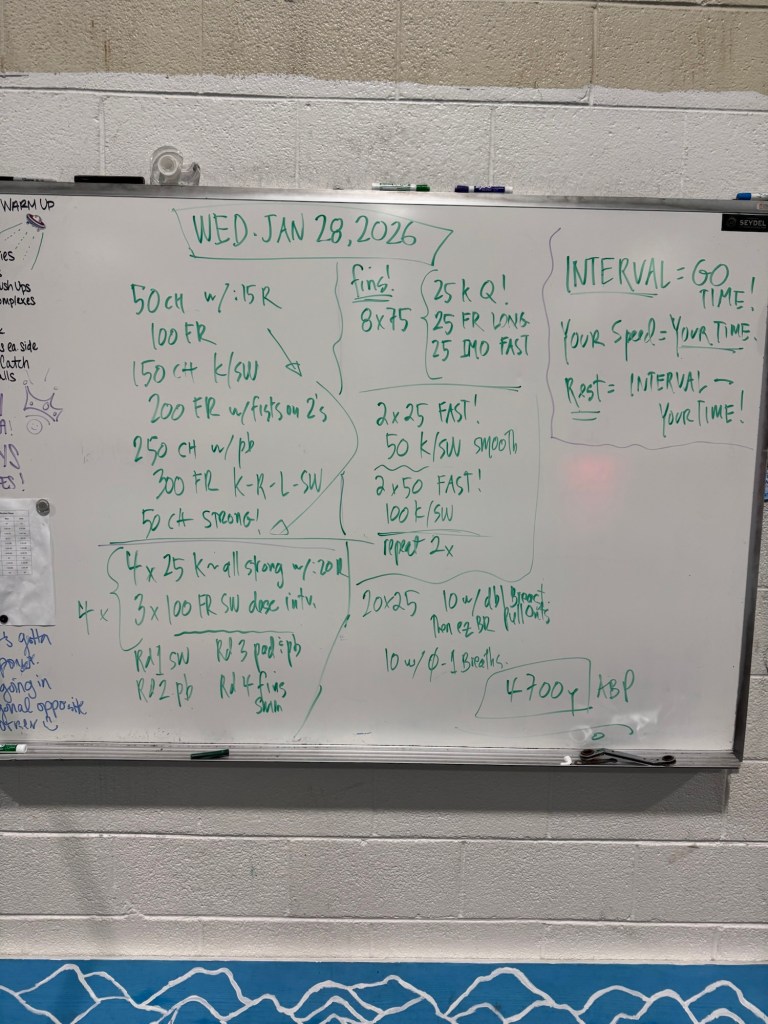 WARM UP
ies
ush Ups
omplexes
s ea. side
Catch
A!
YS
ES!
s gotta
going in
onal opposite
WED. JAN 28, 2026
50 CH w/:15 R
100 FR
150 CH K/SW
200 FR w/fists on 2's
250 CH w/pb
300 FR K-R-L-SW
50 CH STRONG!
4 x
4 x 25 K~all strong w/:20 R
3 x 100 FR SW dose intv.
Rd 1 SW Rd 3 pad:pb
Rd 2 pb Rd 4 fins
Swim
fins!
8x75
25 K Q!
25 FR LONG
25 IMO FAST
2x25 FAST!
50 K/SW smooth
2x50 FAST!
100 K/SW
repeat 2x
20x25 10 w/dbl Breast
Pull Outs
Then ez BR
10 w/ 0-1 Breaths.
4700y ABP
INTERVAL = GO
TIME!
Your Speed = YOUR TIME.
Rest = INTERVAL -
YOUR TIME!
SEYDEL